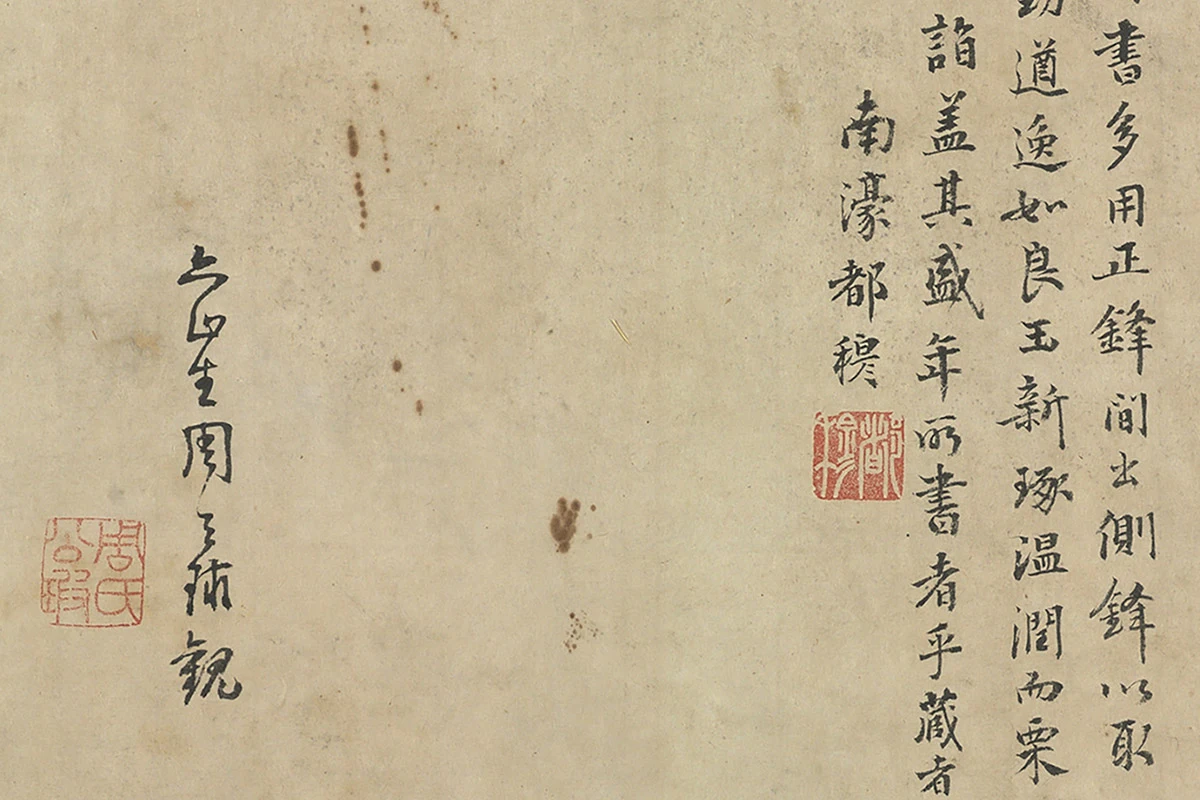 書多用正鋒間出側鋒以取
遒逸如良玉新琢温潤而栗
詣盖其盛年所書者乎藏者
南濠都穆
六止生周天球觀
周氏公瑕